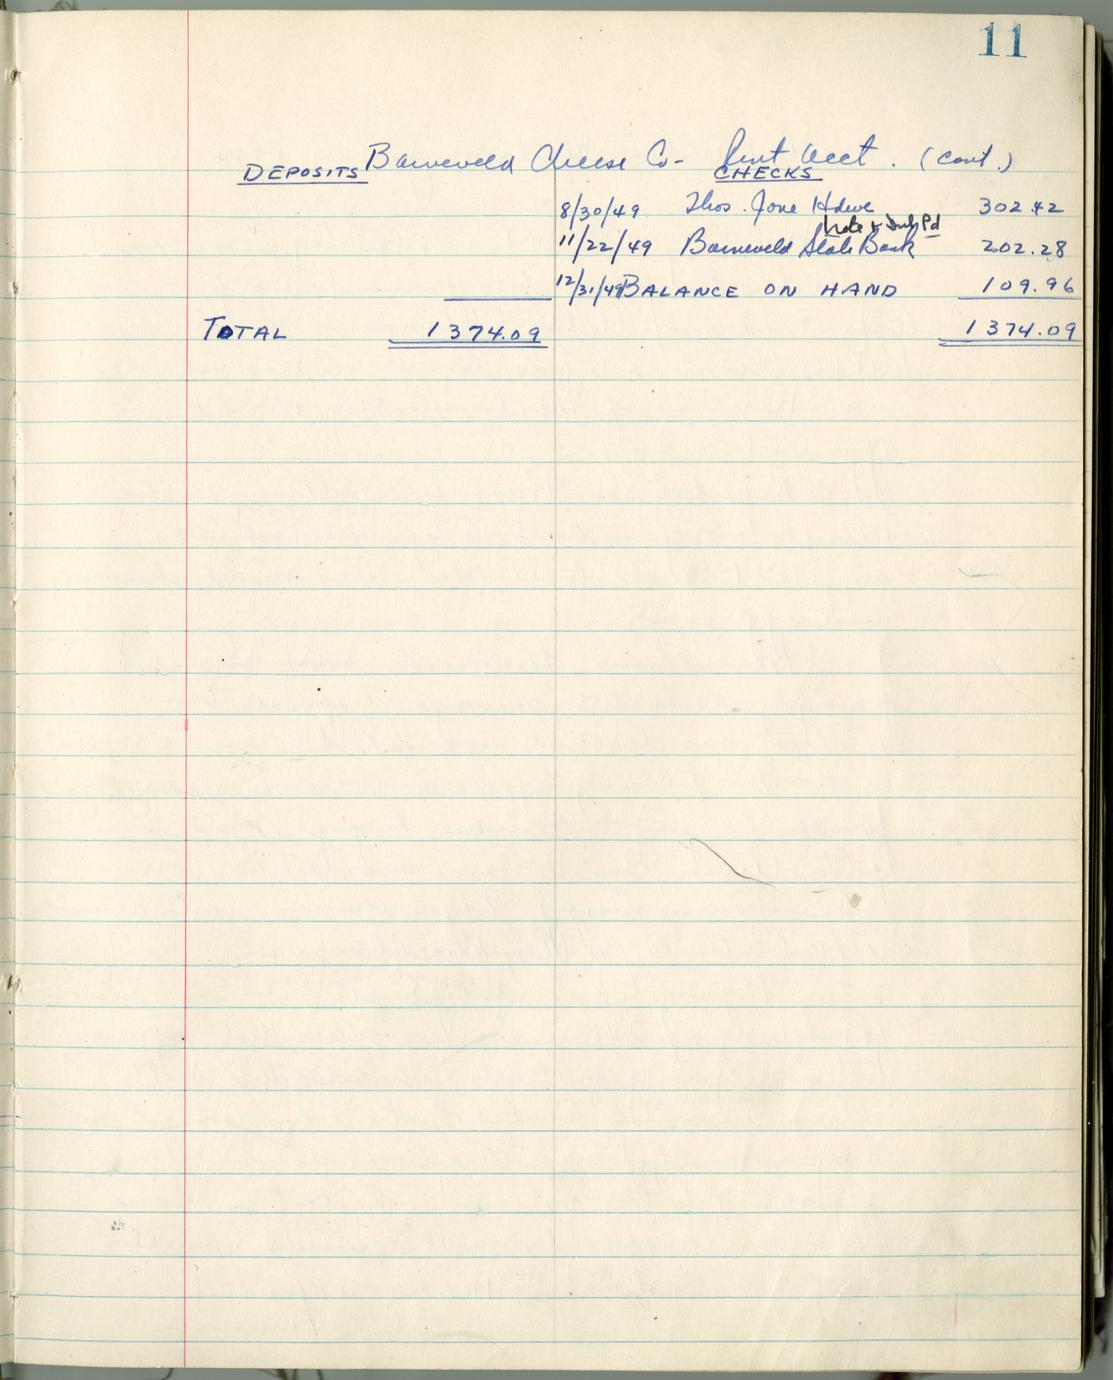 11
Barneveld Cheese Co - Rent Acct. (cont.)
DEPOSITS CHECKS
8/30/49 Thos. Jone Hdwe 302.42
Note & Int Pd
11/22/49 Barneveld State Bank 202.28
12/31/49 BALANCE ON HAND 109.96
TOTAL 1374.09 1374.09